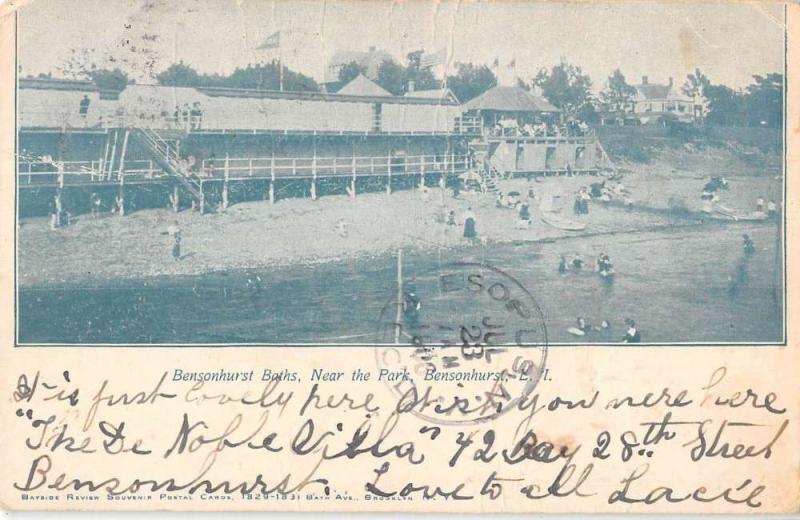 ESOPUS N.Y.
JUL
23
1 AM
REC'D.
Bensonhurst Baths, Near the Park, Bensonhurst, L. I.
It is just lovely here Wish you were here
"The De Noble Villa" 42 Bay 28th Street
Bensonhurst. Love to all Lacie
BAYSIDE REVIEW SOUVENIR POSTAL CARDS, 1829-1831 BATH AVE., BROOKLYN N. Y.